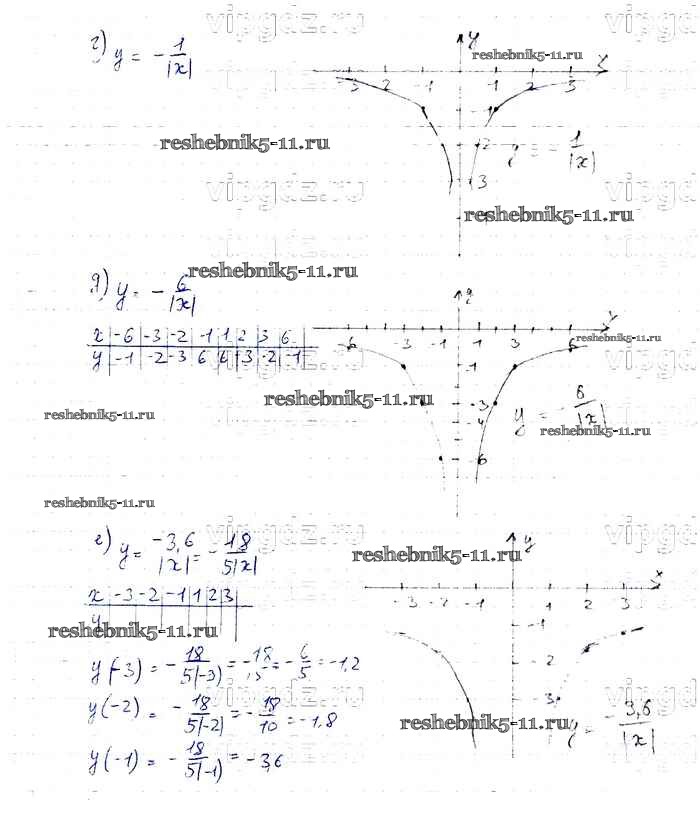 vipgdz.ru
г) y = - 1/|x|
y
reshebnik5-11.ru
x
-3 -2 -1 1 2 3
-1
reshebnik5-11.ru
-2
y = - 1/|x|
3
vipgdz.ru
reshebnik5-11.ru
vipgdz.ru
reshebnik5-11.ru
д) y = - 6/|x|
y
x | -6 | -3 | -2 | -1 | 1 | 2 | 3 | 6
y | -1 | -2 | -3 | 6 | 6 | +3 | -2 | -1
reshebnik5-11.ru
-6 -3 -1 1 3 6
-1
vipgdz.ru
reshebnik5-11.ru
-3
-4
y = - 6/|x|
reshebnik5-11.ru
reshebnik5-11.ru
-6
reshebnik5-11.ru
vipgdz.ru
е) y = -3,6/|x| = - 18/5|x|
y
reshebnik5-11.ru
x | -3 | -2 | -1 | 1 | 2 | 3
y
x
-3 -2 -1 1 2 3
-1
reshebnik5-11.ru
vipgdz.ru
y(-3) = - 18/5|-3| = - 18/15 = - 6/5 = -1,2
-2
vipgdz.ru
y(-2) = - 18/5|-2| = - 18/10 = -1,8
3
reshebnik5-11.ru
y = - 3,6/|x|
y(-1) = - 18/5|-1| = -3,6
vipgdz.ru